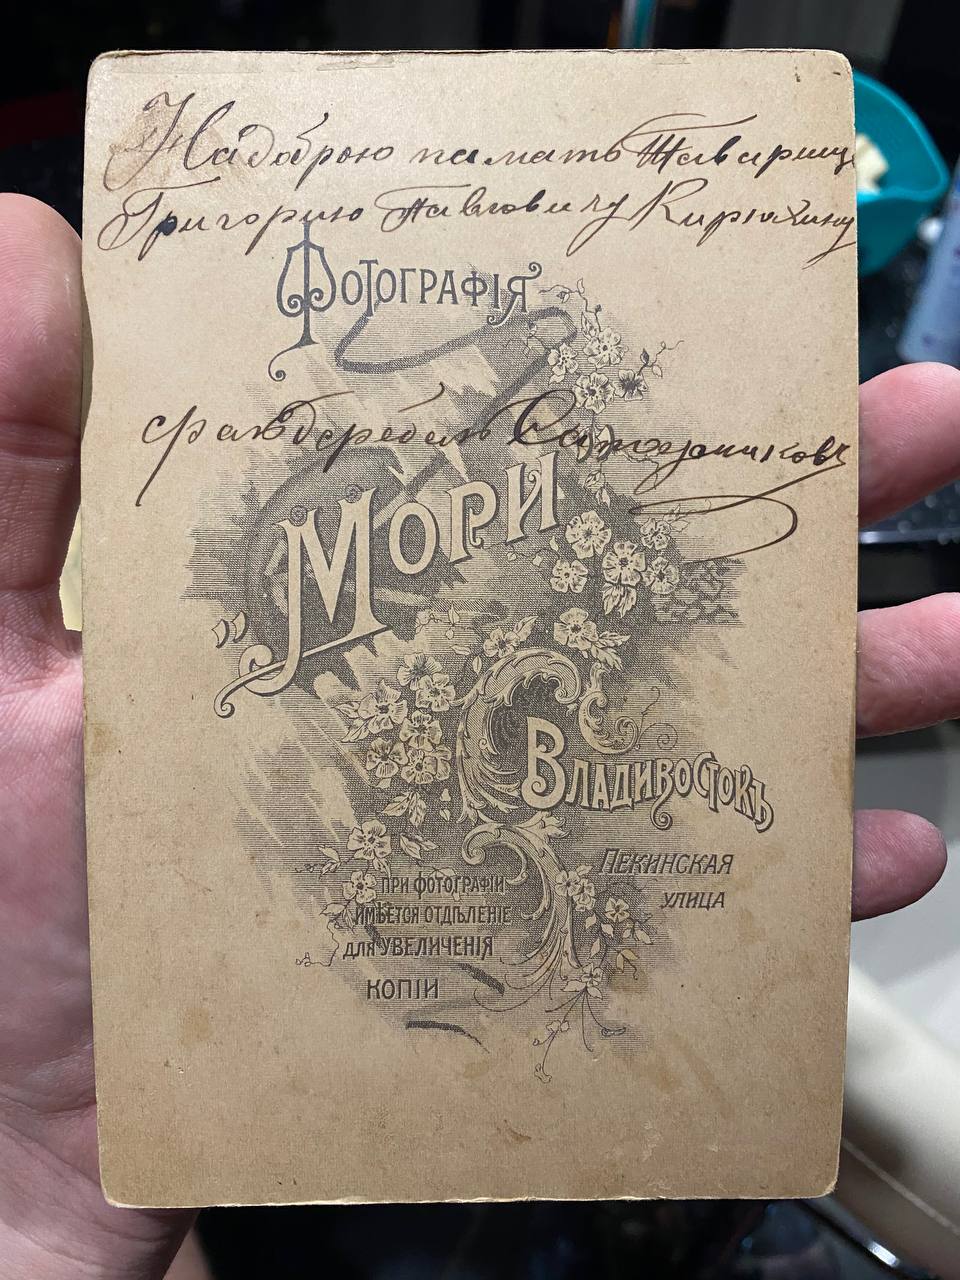 На доброю памать Таварищу
Григорию Павловичу Кирюхину
Фотографія
фальдфебель Сапожников
"Мори"
Владивостокъ
Пекинская
улица
при фотографіи
имѣется отдѣленіе
для увеличенія
копій